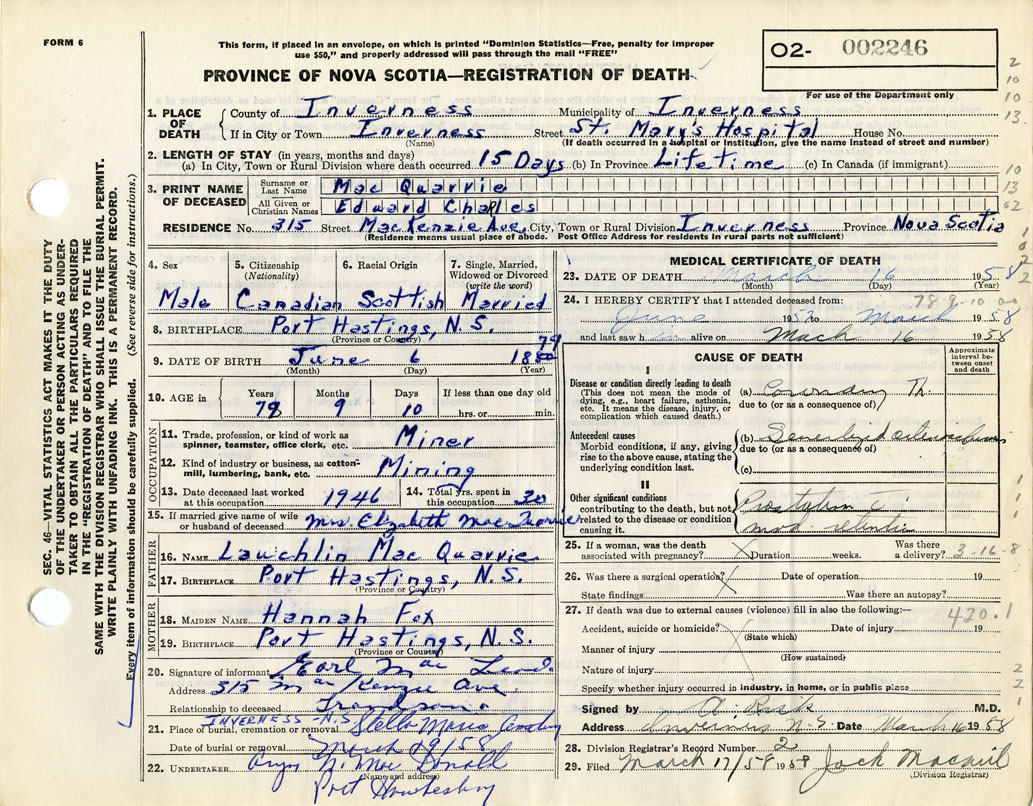 FORM 6
This form, if placed in an envelope, on which is printed "Dominion Statistics—Free, penalty for improper
use $50," and properly addressed will pass through the mail "FREE"
PROVINCE OF NOVA SCOTIA—REGISTRATION OF DEATH
O2- 002246
For use of the Department only
2
10
10
13.
10
13
02
SEC. 46—VITAL STATISTICS ACT MAKES IT THE DUTY
OF THE UNDERTAKER OR PERSON ACTING AS UNDER-
TAKER TO OBTAIN ALL THE PARTICULARS REQUIRED
IN THE "REGISTRATION OF DEATH" AND TO FILE THE
SAME WITH THE DIVISION REGISTRAR WHO SHALL ISSUE THE BURIAL PERMIT.
WRITE PLAINLY WITH UNFADING INK. THIS IS A PERMANENT RECORD.
Every item of information should be carefully supplied. (See reverse side for instructions.)
1. PLACE OF DEATH County of Inverness Municipality of Inverness
If in City or Town Inverness Street St. Mary's Hospital House No.
(Name) (If death occurred in a hospital or institution, give the name instead of street and number)
2. LENGTH OF STAY (in years, months and days)
(a) In City, Town or Rural Division where death occurred 15 Days (b) In Province Lifetime (c) In Canada (if immigrant)
3. PRINT NAME OF DECEASED Surname or Last Name Mac Quarrie
All Given or Christian Names Edward Charles
RESIDENCE No. 315 Street MacKenzie Ave. City, Town or Rural Division Inverness Province Nova Scotia
(Residence means usual place of abode. Post Office Address for residents in rural parts not sufficient)
4. Sex 5. Citizenship (Nationality) 6. Racial Origin 7. Single, Married, Widowed or Divorced (write the word)
Male Canadian Scottish Married
8. BIRTHPLACE Port Hastings, N.S.
(Province or Country)
79
9. DATE OF BIRTH June 6 1880
(Month) (Day) (Year)
10. AGE in Years Months Days If less than one day old
78 9 10 hrs. or min.
OCCUPATION
11. Trade, profession, or kind of work as spinner, teamster, office clerk, etc. Miner
12. Kind of industry or business, as cotton-mill, lumbering, bank, etc. Mining
13. Date deceased last worked at this occupation 1946 14. Total yrs. spent in this occupation 20
15. If married give name of wife or husband of deceased Mrs. Elizabeth Mac Quarrie
FATHER
16. NAME Lauchlin Mac Quarrie
17. BIRTHPLACE Port Hastings, N.S.
(Province or Country)
MOTHER
18. MAIDEN NAME Hannah Fox
19. BIRTHPLACE Port Hastings, N.S.
(Province or Country)
20. Signature of informant Earl Mac Leod.
Address 315 MacKenzie Ave.
Relationship to deceased Grandson
21. Place of burial, cremation or removal INVERNESS-N.S. Stella Maris
Date of burial or removal March 19/58
22. UNDERTAKER N. Mac Donald
(Name and address)
Port Hawkesbury
MEDICAL CERTIFICATE OF DEATH
23. DATE OF DEATH March 16 1958
(Month) (Day) (Year)
24. I HEREBY CERTIFY that I attended deceased from: 78 9-10-00
June 1952 to March 1958
and last saw h im alive on Mach 16 1958
CAUSE OF DEATH
Approximate interval between onset and death
I
Disease or condition directly leading to death
(This does not mean the mode of dying, e.g., heart failure, asthenia, etc. It means the disease, injury, or complication which caused death.)
(a) Coronary Th.
due to (or as a consequence of)
Antecedent causes
Morbid conditions, if any, giving rise to the above cause, stating the underlying condition last.
(b)
due to (or as a consequence of)
(c)
II
Other significant conditions
contributing to the death, but not related to the disease or condition causing it.
retention
25. If a woman, was the death associated with pregnancy? Duration weeks. Was there a delivery? 3-16-8
26. Was there a surgical operation? Date of operation 19
State findings Was there an autopsy?
27. If death was due to external causes (violence) fill in also the following:— 420.1
Accident, suicide or homicide? Date of injury 19
(State which)
Manner of injury
(How sustained)
Nature of injury
Specify whether injury occurred in industry, in home, or in public place
Signed by M.D.
Address Inverness N.S. Date March 16 1958
28. Division Registrar's Record Number 2
29. Filed March 17/58 1958 Jack Macneil
(Division Registrar)